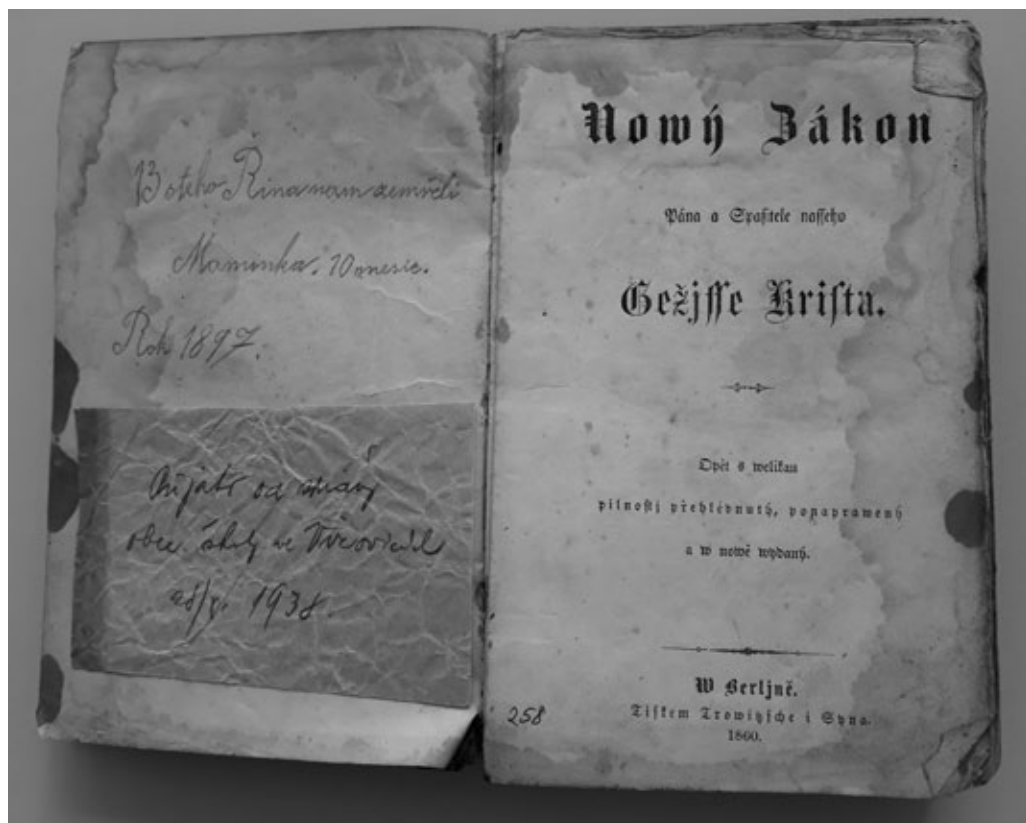 13 oteho Řina nam zemřeli
Maminka. 10 mesic.
Rok 1897.
od
obec. školy ve
1938.
258
Nowý Zákon
Pána a Spasitele nasseho
Gežjsse Krista.
Opět s welikau
pilnostj přehlédnutý, pooprawený
a w nowě wydaný.
W Berljně.
Tiskem Trowitzsche i Syna.
1860.